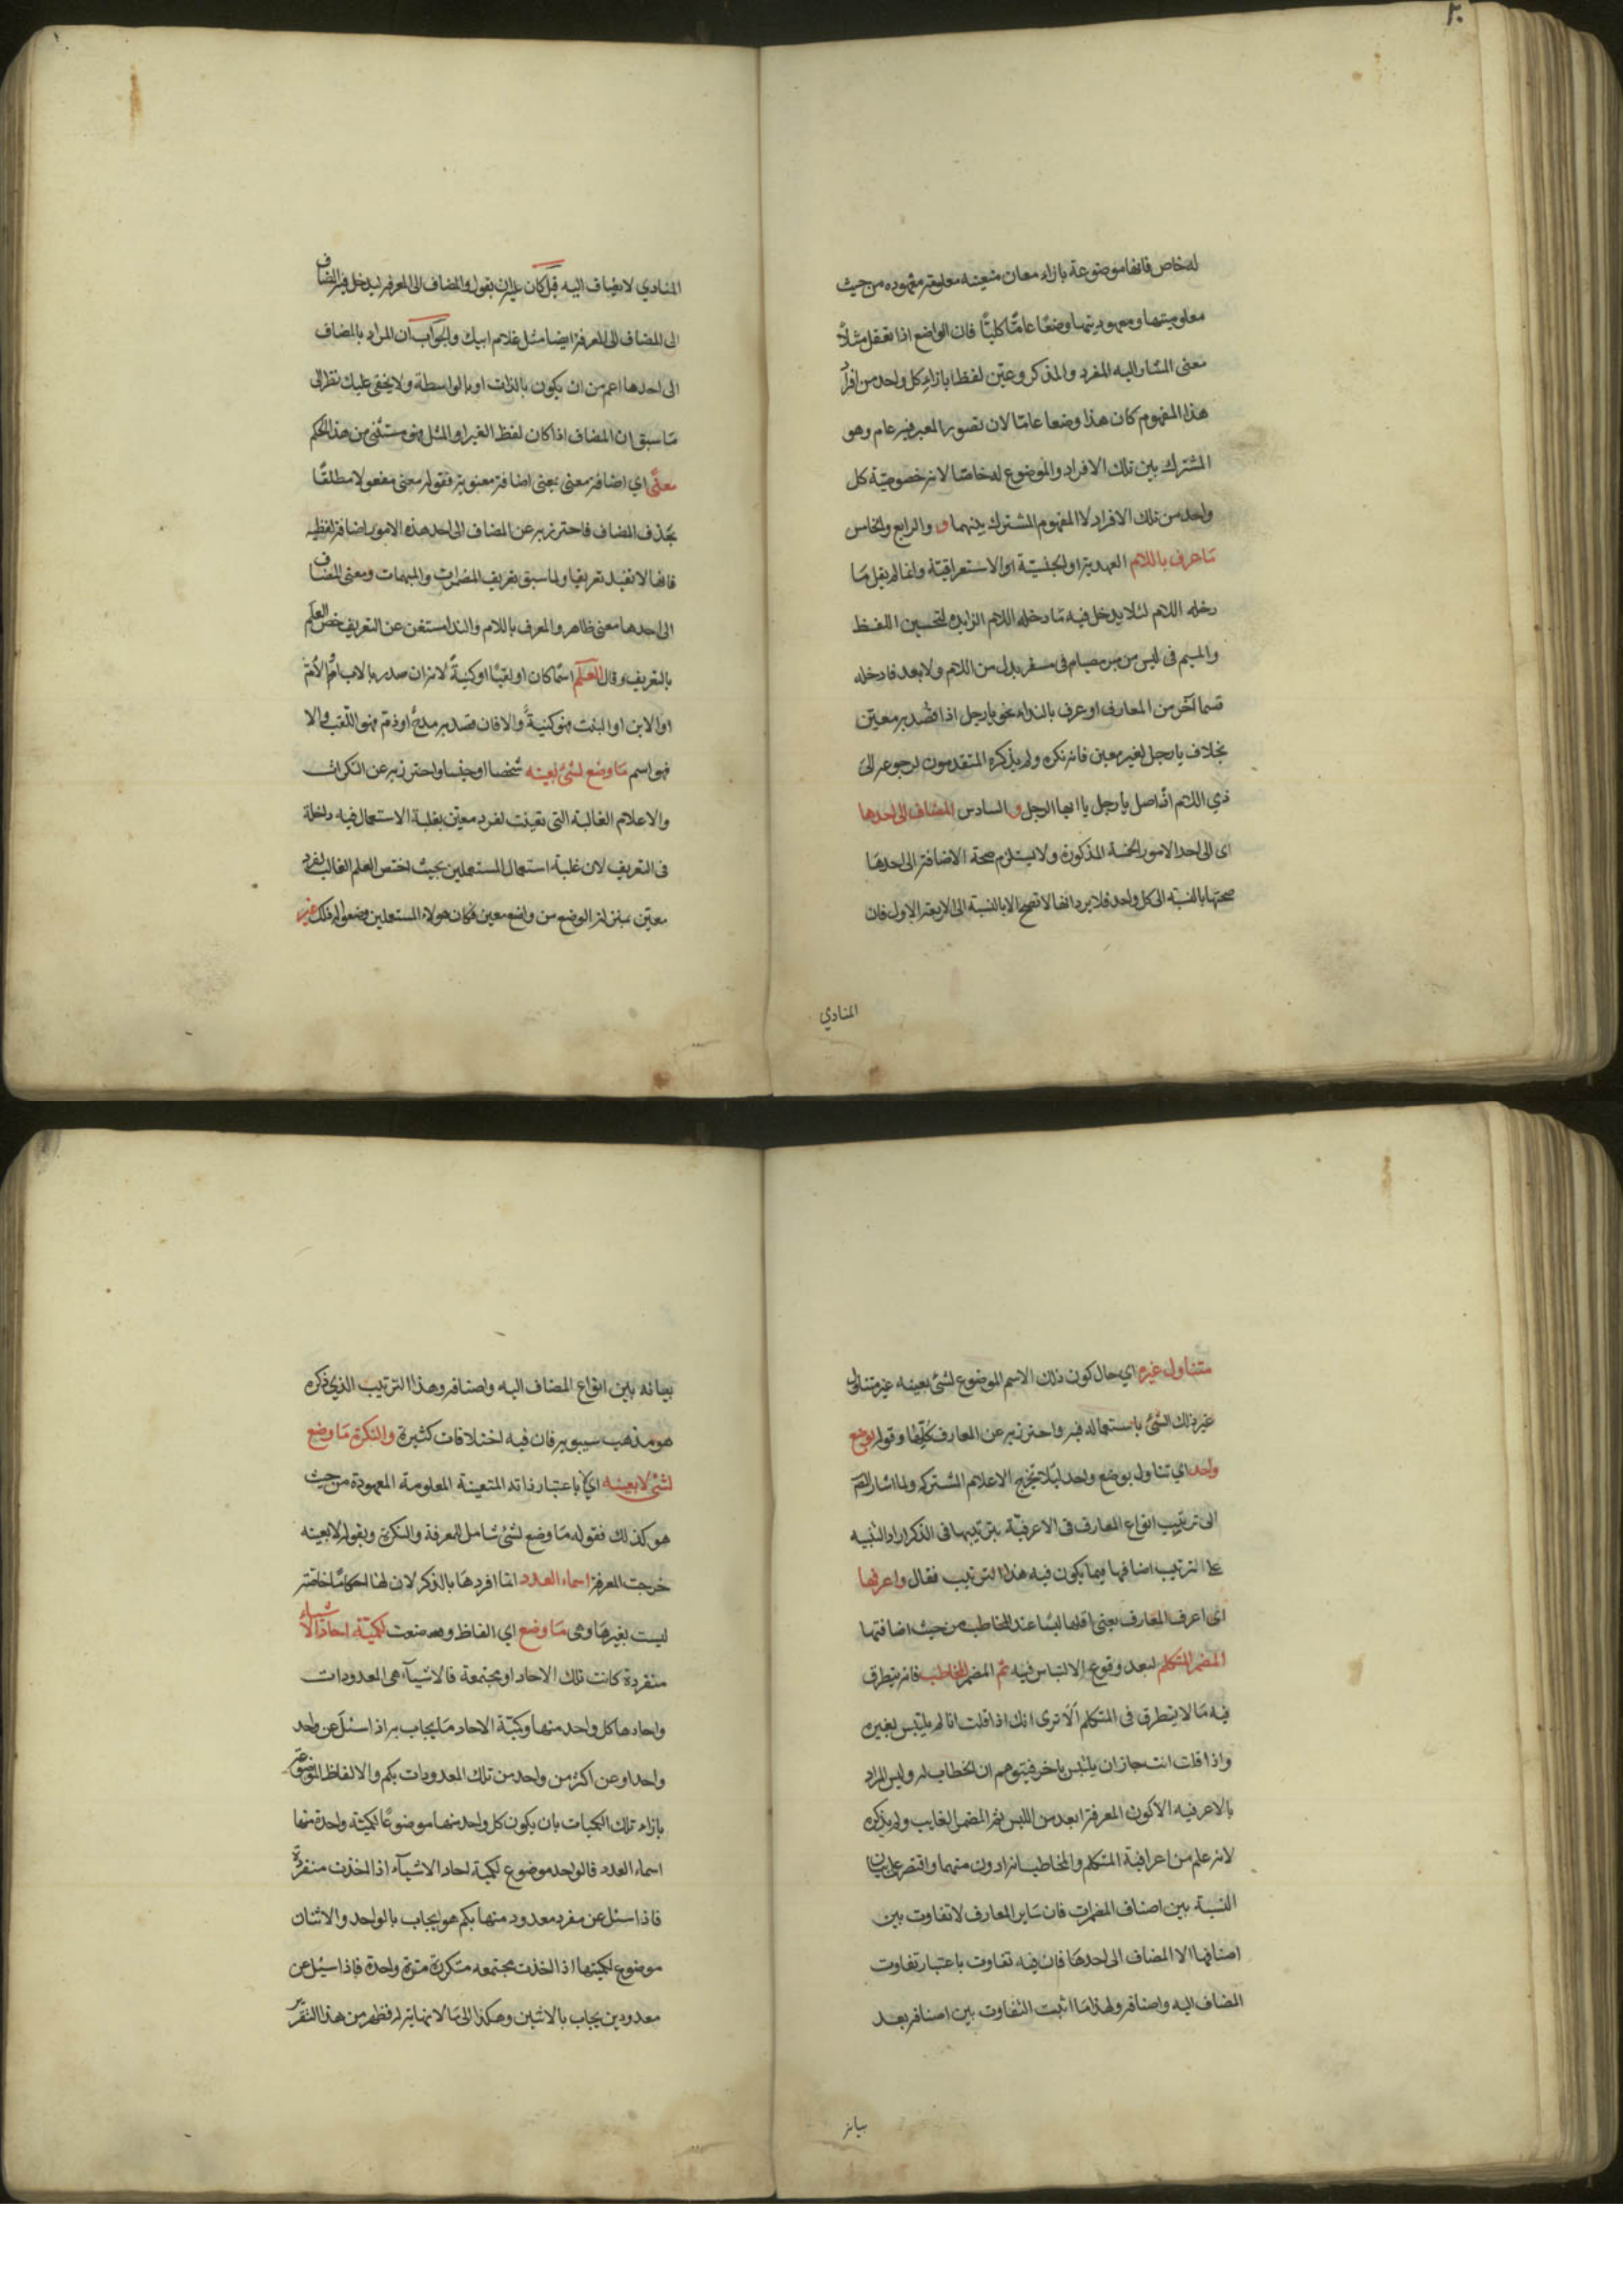 ٢٠
له خاص فانها موضوعة بازاء معان متعينه معلومة معهوده من حيث
معلوميتها ومعهوديتها وضعًا عامًّا كليًّا فان الواضع اذا تعقل مثلاً
معنى المشار اليه المفرد والمذكر وعيّن لفظا بازاء كل واحد من افراد
هذا المفهوم كان هذا وضعا عامّا لان تصور المعبر فيه عام وهو
المشترك بين تلك الافراد والموضوع له خاصّا لانه خصوصيّة كل
واحد من تلك الافراد لا المفهوم المشترك بينهما و والرابع والخامس
مَا عرف باللام العهديّة او الجنسيّة او الاستغراقيّة وانما لم يقل مَا
دخله اللام لئلا يدخل فيه مَا دخله اللام الزايده لتحسين اللفظ
والميم فى ليس من مبر مصيام فى مسفر بدل من اللام ولا يعد فا دخله
قسما آخر من المعارف او عرف بالنداء نحو يا رجل اذا قصد به معيّن
بخلاف يا رجل لغير معين فانه نكره ولم يذكره المتقدمون لرجوعه الى
ذي اللام اذ اصل يا رجل يا ايها الرجل و السادس المضاف الى احدها
اى الى احد الامور الخمسة المذكورة ولا يستلزم صحة الاضافة الى احدهَا
صحتها بالنسبة الى كل واحد فلا يرد انها لا تصح الا بالنسبة الى الاربعة الاول فان
المنادي
المنادي لا يضاف اليه قيل كان عليه ان يقول والمضاف الى المعرفة ليدخل فيه المضاف
الى المضاف الى المعرفة ايضا مثل غلام ابيك والجواب ان المراد بالمضاف
الى احدها اعم من ان يكون بالذات او بالواسطة ولا يخفى عليك نظرا الى
مَا سبق ان المضاف اذا كان لفظ الغير او المثل فهو مستثنى من هذا الحكم
معنًى اي اضافة معنى يعنى اضافة معنوية فقوله معنى مفعول مطلقًا
بحذف المضاف فاحترز به عن المضاف الى احد هذه الامور اضافة لفظيه
فانها لا تفيد تعريفا ولما سبق تعريف المضمرات والمبهمات ومعنى المضاف
الى احدها معنى ظاهر والمعرف باللام والندا مستغن عن التعريف خص العلم
بالتعريف وقال العلم اسمًا كان او لقبًا او كنيةً لانه ان صدر بالاب او الام
او الابن او البنت فهو كنيةٌ والا فان قصد به مدحٌ او ذم فهو اللقب والا
فهو اسم مَا وضع لشئ بعينه شخصا او جنسا واحترز به عن النكرات
والاعلام الغالبة التى تعينت لفرد معين بغلبة الاستعمال فيه داخلة
فى التعريف لان غلبة استعمال المستعملين بحيث اختص العلم الغالب لفرد
معيّن بمنزلة الوضع من واضع معين فكان هولاء المستعملين وضعوا له ذلك غير
متناول غيره اي حال كون ذلك الاسم الموضوع لشئ بعينه غير متناول
غير ذلك الشئ باستعماله فيه واحترز به عن المعارف كلها وقوله بوضع
واحد اي تناول بوضع واحد لئلا يخرج الاعلام المشتركه ولما اشار المص
الى ترتيب انواع المعارف فى الاعرفيّة بترتيبها فى الذكر اراد التنبيه
على ترتيب اضافها فيما يكون فيه هذا الترتيب فقال واعرفها
اى اعرف المعارف يعنى اقلها لبسًا عند المخاطب من حيث اضافتها
المضمر المتكلم لبعد وقوع الالتباس فيه ثم المضمر المخاطب فانه يتطرق
فيه مَا لا يتطرق فى المتكلم ألا ترى انك اذا قلت انا لم يلتبس بغيره
واذا قلت انت جاز ان يلتبس باخر فيتوهم ان الخطاب له وليس المراد
بالاعرفيه الا كون المعرفة ابعد من اللبس ثم المضمر الغايب ولم يذكره
لانه علم من اعرافية المتكلم والمخاطب انه ادون منهما واقتصر على بيان
النسبة بين اصناف المضمرات فان سَاير المعارف لا تفاوت بين
اصنافها الا المضاف الى احدهَا فان فيه تفاوت باعتبار تفاوت
المضاف اليه واصنافه ولهذا مَا اثبت التفاوت بين اصنافه بعد
بيانه
بيانه بين انواع المضاف اليه واصنافه وهذا الترتيب الذي ذكره
هو مذهب سيبويه فان فيه اختلافات كثيرة والنكرة مَا وضع
لشئ لا بعينه اي لا باعتبار ذاته المتعينة المعلومة المعهودة من حيث
هو كذلك فقوله مَا وضع لشئ شامل للمعرفة والنكرة وبقوله لا بعينه
خرجت المعرفة اسماء العدد انما افردهَا بالذكر لان لها احكامًا خاصّة
ليست لغيرهَا وهى مَا وضع اي الفاظ وضعت لكميّة احاد الاشياء
منفردة كانت تلك الاحاد او مجتمعة فالاشيآء هى المعدودات
واحادها كل واحد منها وكميّة الاحاد مَا يجاب به اذا سئل عن واحد
واحد او عن اكثر من واحد من تلك المعدودات بكم والالفاظ الموضوعة
بازاء تلك الكميات بان يكون كل واحد منها موضوعًا لكميّة واحدة منها
اسماء العدد فالواحد موضوع لكمية احاد الاشيآء اذا اخذت منفردة
فاذا سئل عن مفرد معدود منها بكم هو يجاب بالواحد والاثنان
موضوع لكميتها اذا اخذت مجتمعه متكررة مرة واحدة فاذا سئل عن
معدودين يجاب بالاثنين وهكذا الى مَا لا نهاية له فظهر من هذا التقرير